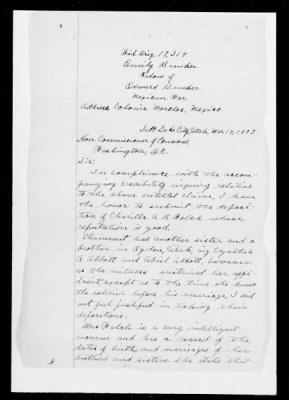 Wid. Orig. 17,319
Emily Bunker
Widow of
Edward Bunker
Mexican War
Address Colonia Morelos, Mexico
Salt Lake City, Utah, Mar 12, 1907.
Hon. Commissioner of Pensions,
Washington, D.C.
Sir:
In compliance with the accom-
panying credibility inquiry relative
to the above entitled claim, I have
the honor to submit the deposi-
tion of A. B. Welch whose
reputation is good.
Claimant had another sister and a
brother in Ogden, Utah, viz
A Abbott and Abiel Abbott, however
as the witness sustained her affi-
davit, except as to the time she knew
the soldier before his marriage, I did
not feel justified in taking their
depositions.
Mrs Welch is a very intelligent
woman and has a record of the
dates of birth and marriages of her
brothers and sisters. She states that